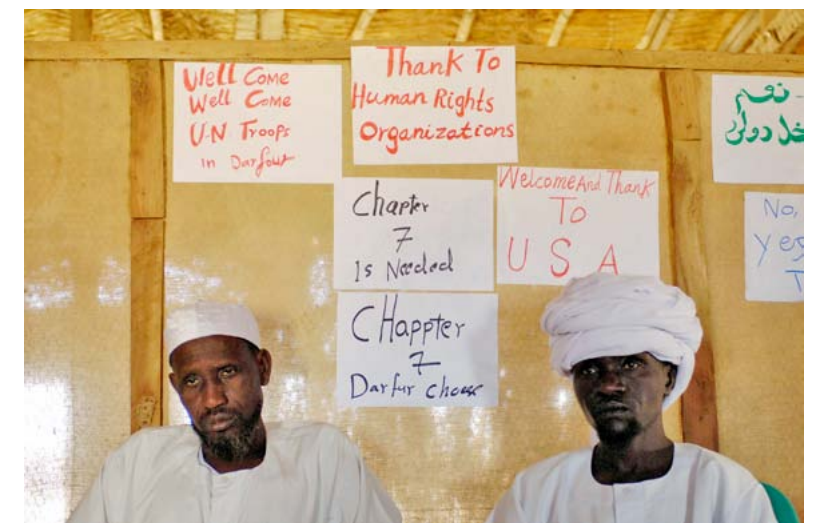 Well Come
Well Come
U-N Troops
in Darfour
Thank To
Human Rights
Organizations
Chapter
7
Is Needed
Welcome And Thank
To
U S A
CHappter
7
Darfur choose
نعم
No,
yes
T